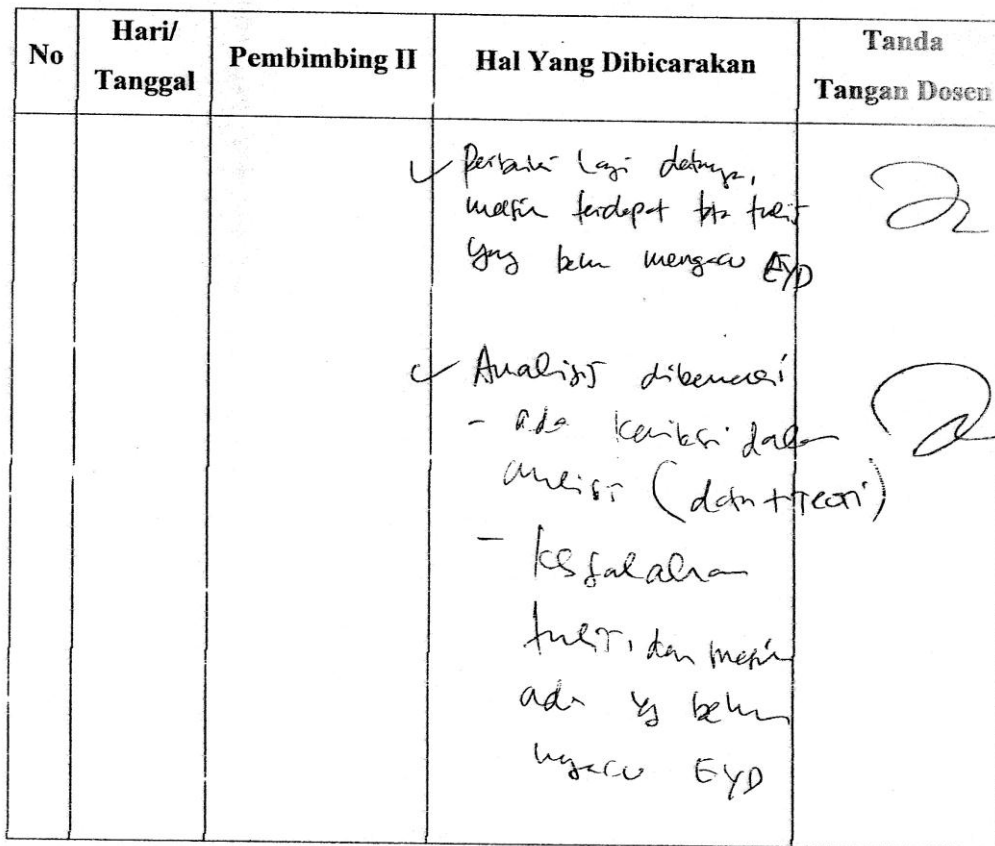 No
Hari/
Tanggal
Pembimbing II
Hal Yang Dibicarakan
Tanda
Tangan Dosen
Perbaiki lagi datanya,
masih terdapat tata tulis
yang belum mengacu EYD
Analisis dibenahi
- ada dalam
analisis (data + teori)
- kesalahan
tulis, dan masih
ada yg belum
ngacu EYD